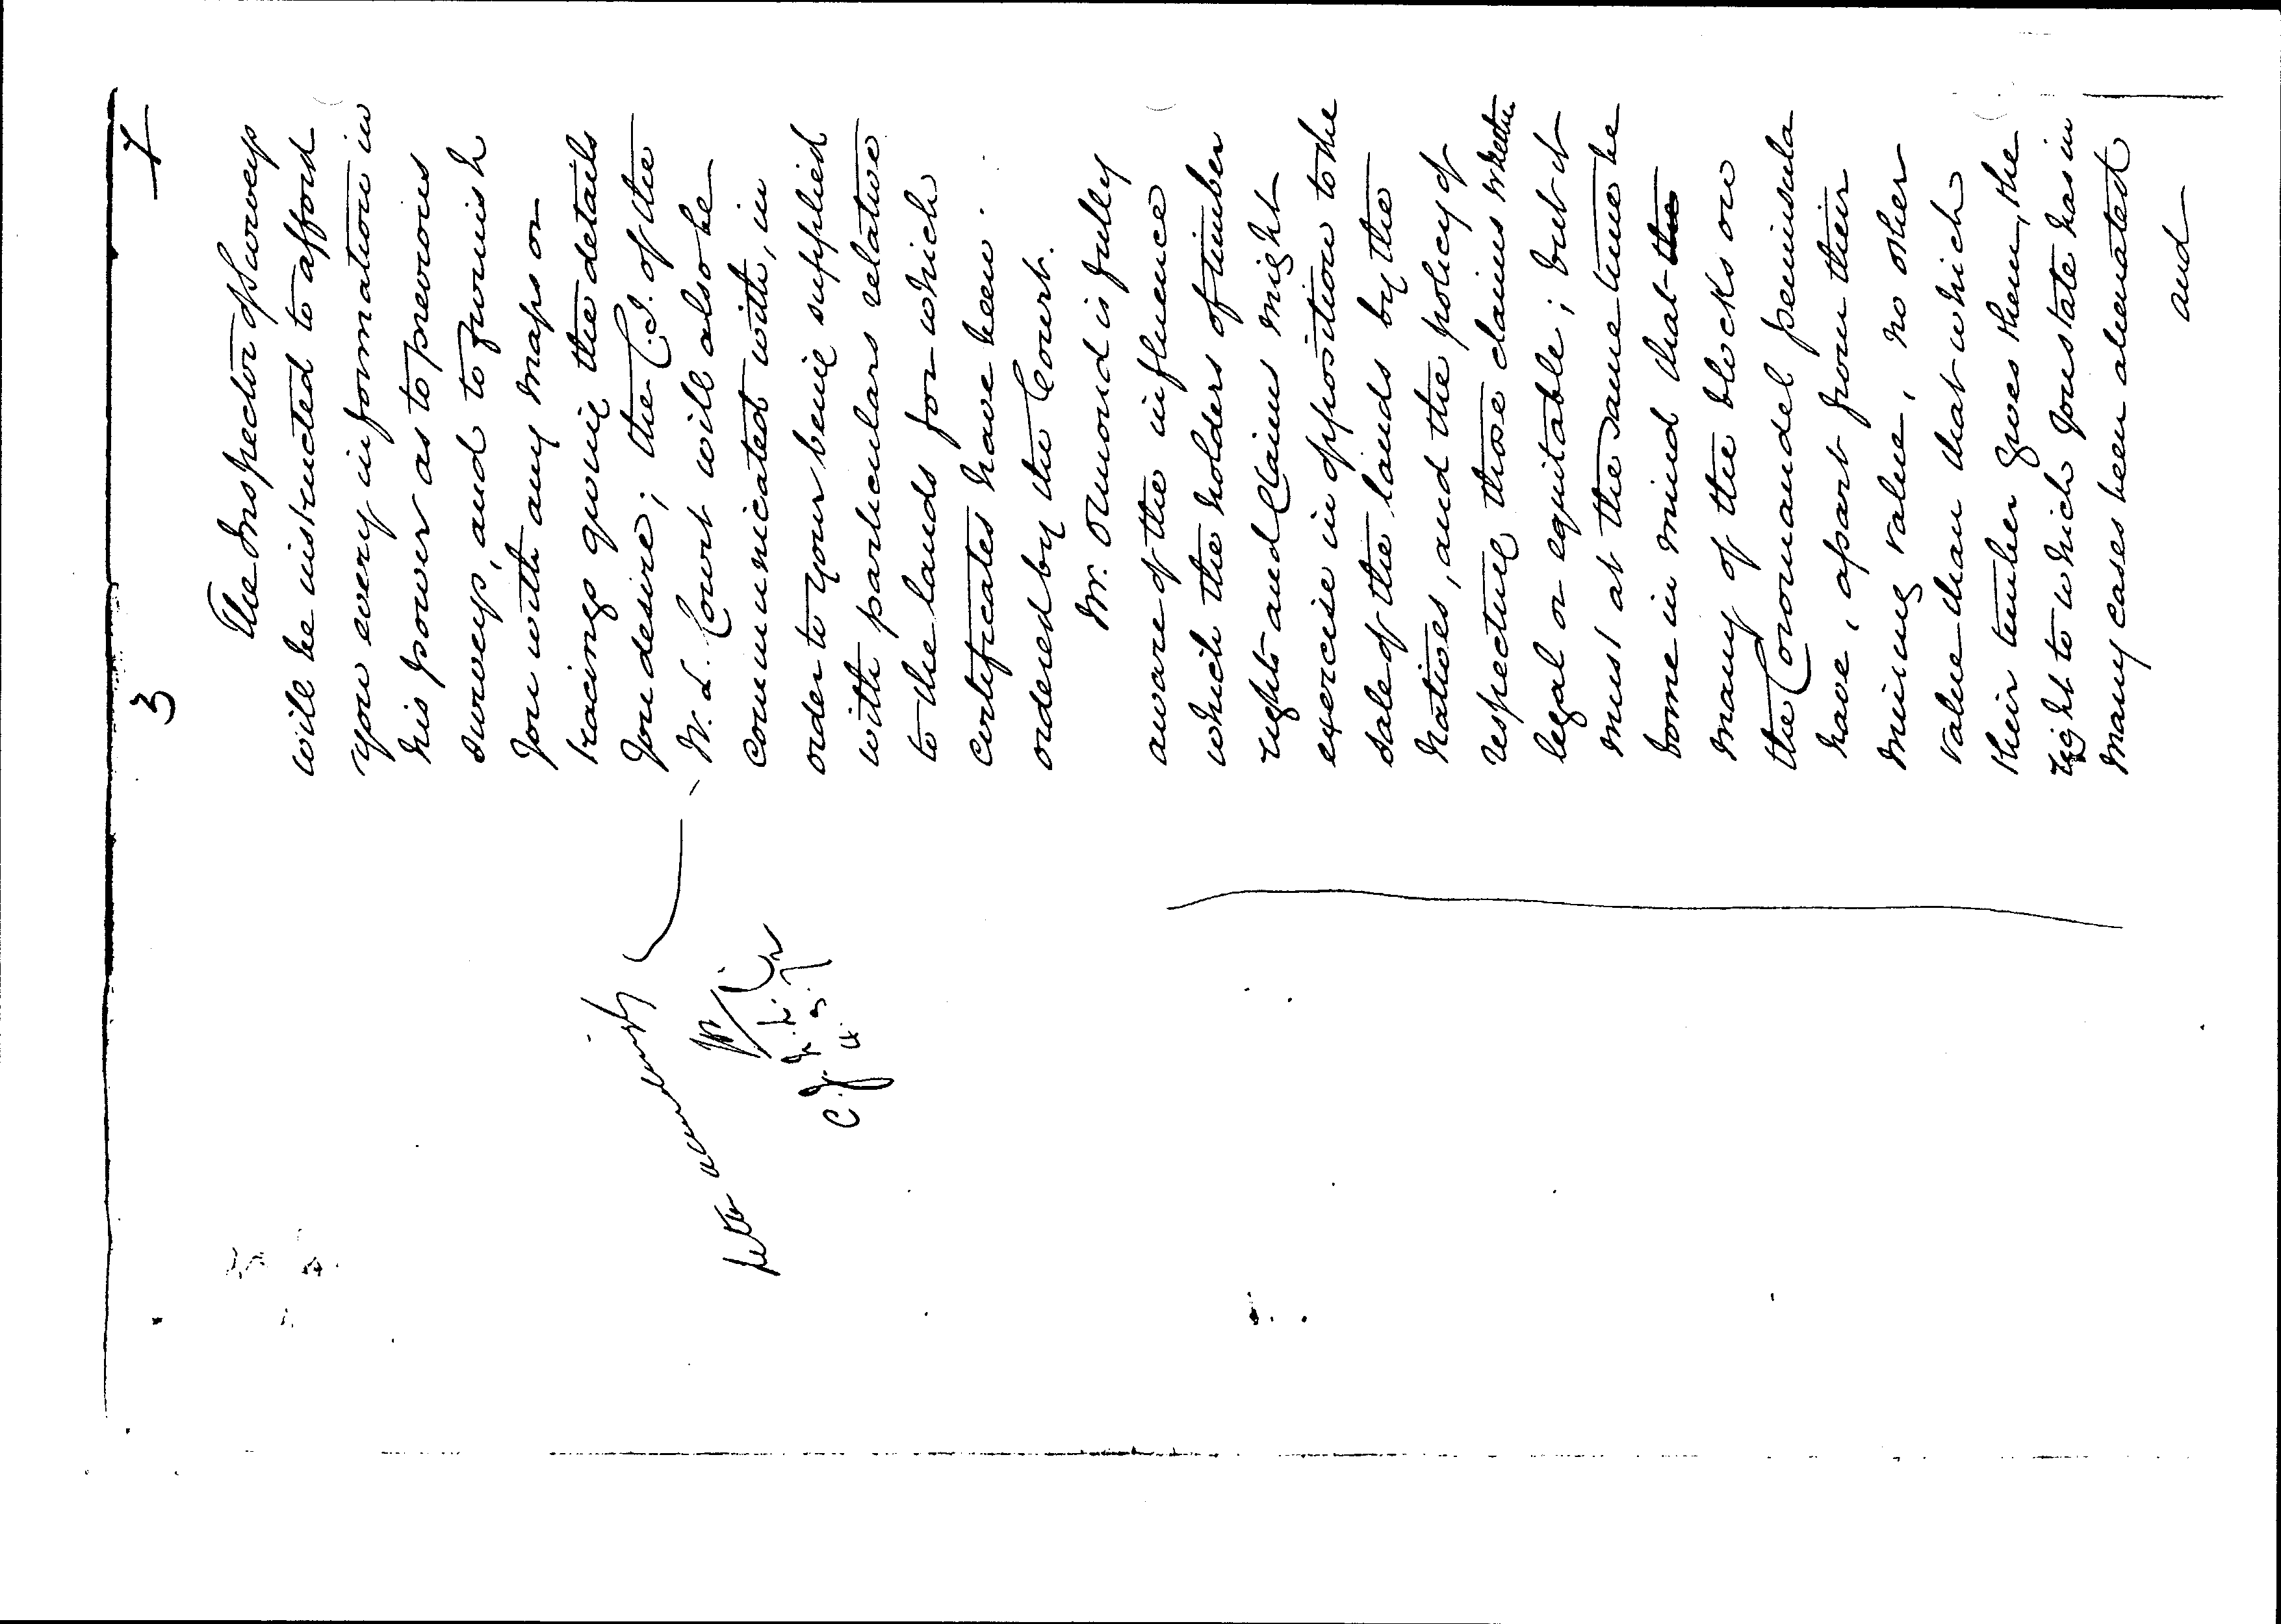 3
The Inspector of Surveys
will be instructed to afford
you every information in
his power as to previous
surveys, and to furnish
you with any maps or
tracings giving the details
you desire; the C.J. of the
N. L. Court will also be
communicated with, in
order to your being supplied
with particulars relative
to the lands for which
certificates have been
ordered by the Court.
Mr. Ormond is fully
aware of the influence
which the holders of timber
rights and claims might
exercise in opposition to the
sale of the lands by the
natives, and the policy of
respecting those claims whether
legal or equitable; but it
must at the same time be
borne in mind that the
many of the blocks on
the Coromandel peninsula
have, apart from their
mining value, no other
value than that which
their timber gives them, the
right to which you state has in
many cases been alienated
and